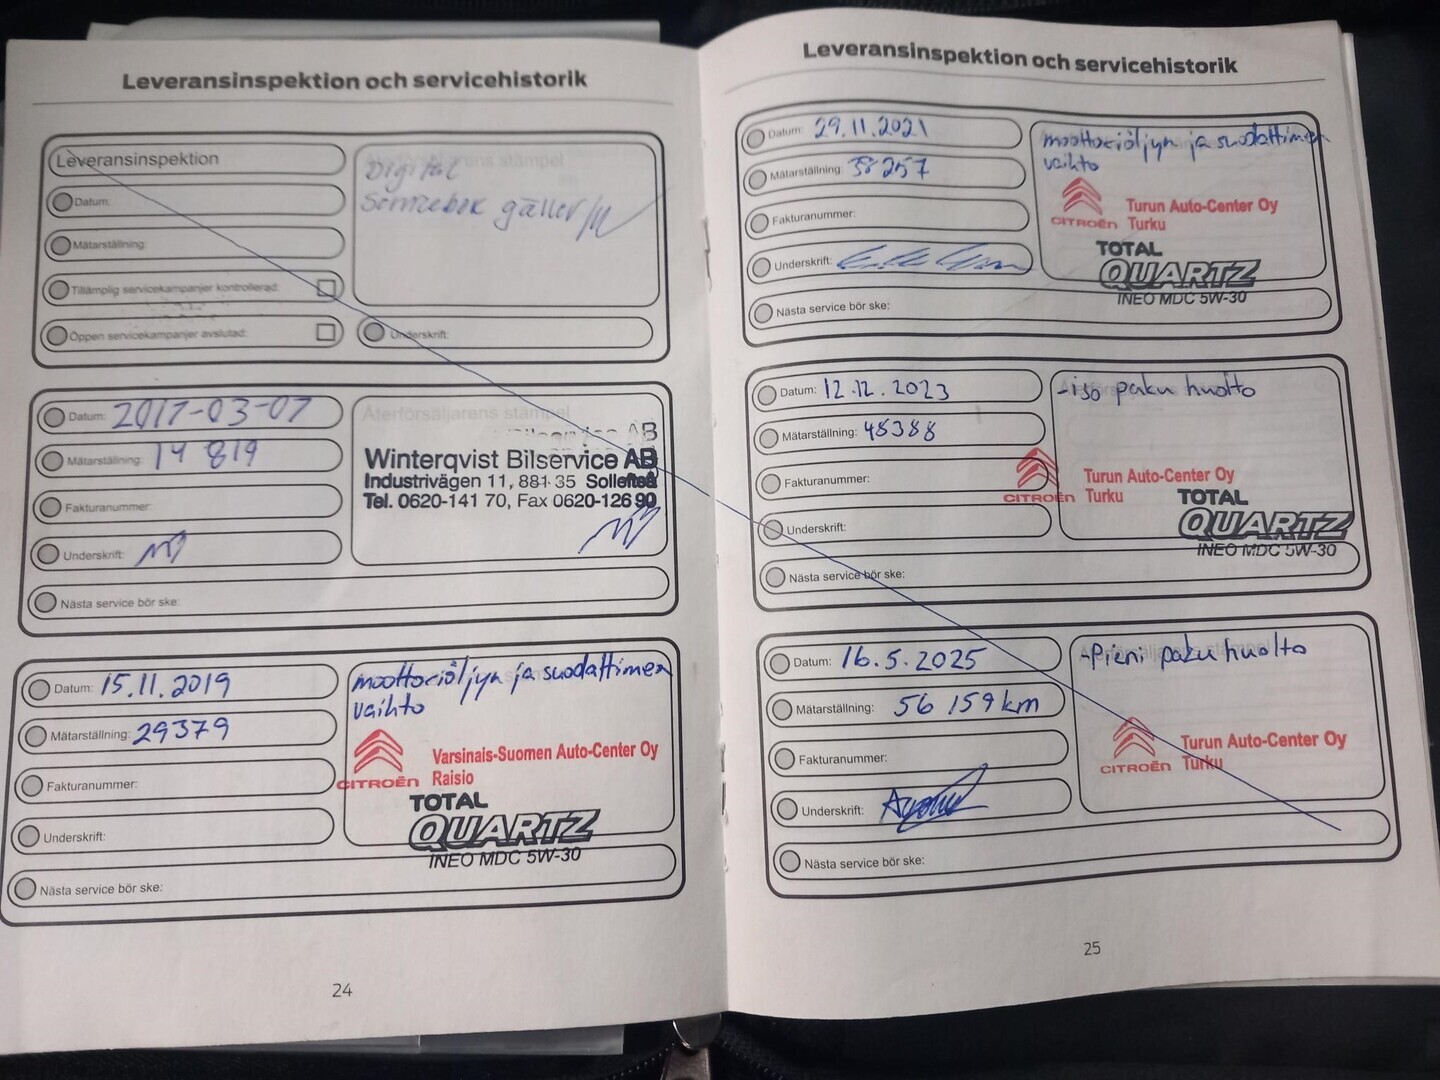 Leveransinspektion och servicehistorik
Leveransinspektion
Datum:
Mätarställning:
Tillämplig servicekampanjer kontrollerad:
Öppen servicekampanjer avslutad:
Återförsäljarens stämpel
Digital
Servicebok gäller
Underskrift:
Datum: 2017-03-07
Mätarställning: 14 819
Fakturanummer:
Underskrift:
Nästa service bör ske:
Återförsäljarens stämpel
Bilservice AB
Winterqvist Bilservice AB
Industrivägen 11, 881 35 Sollefteå
Tel. 0620-141 70, Fax 0620-126 90
Datum: 15.11.2019
Mätarställning: 29379
Fakturanummer:
Underskrift:
Nästa service bör ske:
moottoriöljyn ja suodattimen
vaihto
CITROËN
Varsinais-Suomen Auto-Center Oy
Raisio
TOTAL
QUARTZ
INEO MDC 5W-30
24
Leveransinspektion och servicehistorik
Datum: 29.11.2021
Mätarställning: 38257
Fakturanummer:
Underskrift:
Nästa service bör ske:
moottoriöljyn ja suodattimen
vaihto
CITROËN
Turun Auto-Center Oy
Turku
TOTAL
QUARTZ
INEO MDC 5W-30
Datum: 12.12.2023
Mätarställning: 48388
Fakturanummer:
Underskrift:
Nästa service bör ske:
-iso paku huolto
CITROËN
Turun Auto-Center Oy
Turku
TOTAL
QUARTZ
INEO MDC 5W-30
Datum: 16.5.2025
Mätarställning: 56 159 km
Fakturanummer:
Underskrift:
Nästa service bör ske:
-Pieni paku huolto
CITROËN
Turun Auto-Center Oy
Turku
25